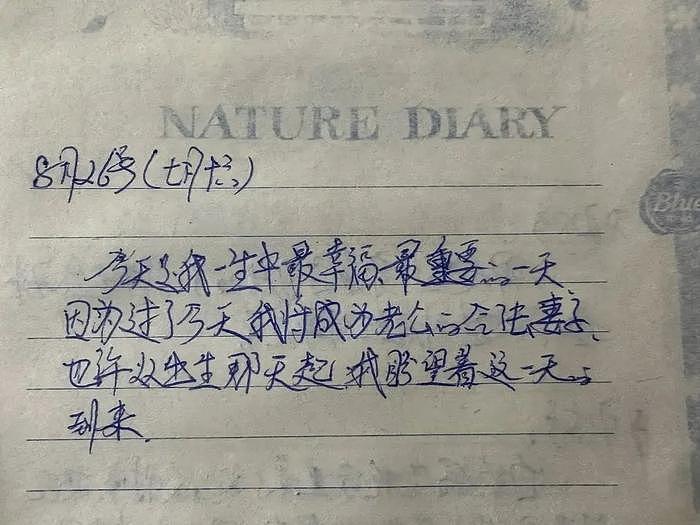 NATURE DIARY
8月26号(七月十三)
Blue
今天是我一生中最幸福、最重要的一天
因为过了今天我将成为老公的合法妻子,
也许从出生那天起,我盼望着这一天的
到来.